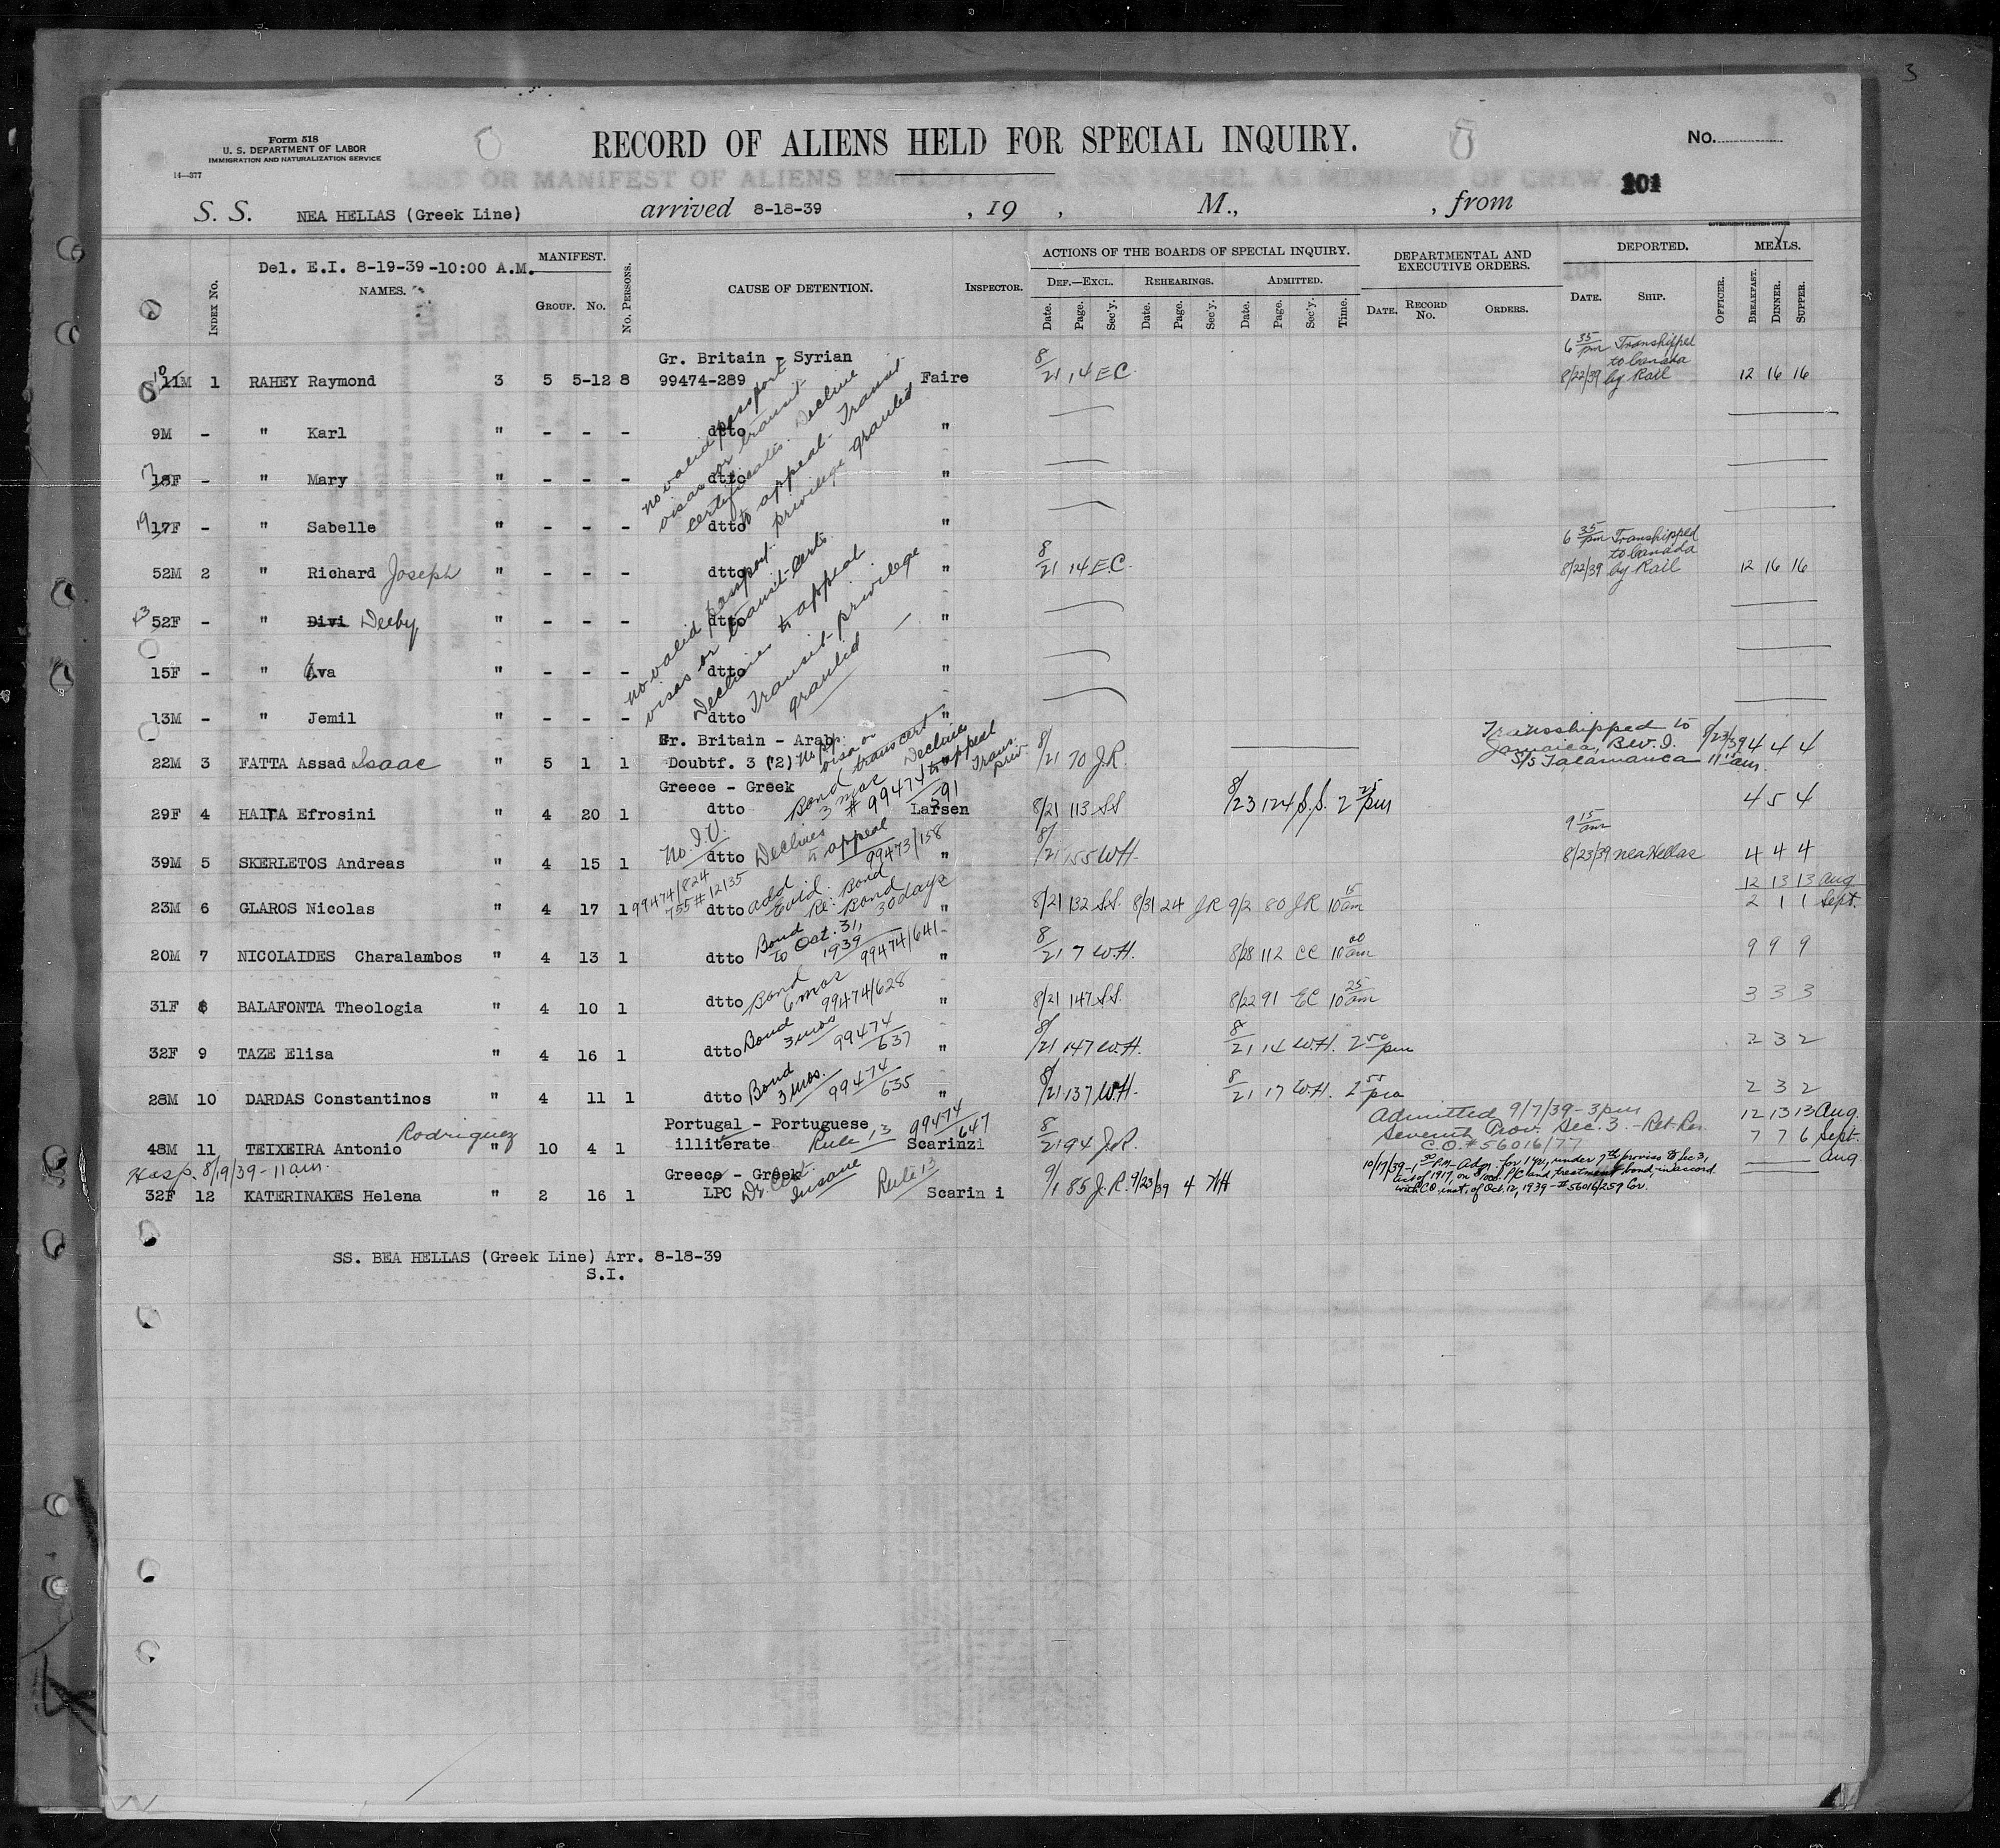 3
Form 518
U. S. DEPARTMENT OF LABOR
IMMIGRATION AND NATURALIZATION SERVICE
14—377
RECORD OF ALIENS HELD FOR SPECIAL INQUIRY.
No.
LIST OR MANIFEST OF ALIENS EMPLOYED ON THE VESSEL AS MEMBERS OF CREW.
101
S. S. NEA HELLAS (Greek Line) arrived 8-18-39 , 19 , M., , from
Del. E.I. 8-19-39 -10:00 A.M.
INDEX NO. NAMES. MANIFEST. GROUP. NO. NO. PERSONS. CAUSE OF DETENTION. INSPECTOR. ACTIONS OF THE BOARDS OF SPECIAL INQUIRY. DEF.—EXCL. Date. Page. Sec'y. REHEARINGS. Date. Page. Sec'y. ADMITTED. Date. Page. Sec'y. Time. DEPARTMENTAL AND EXECUTIVE ORDERS. DATE. RECORD NO. ORDERS. DEPORTED. DATE. SHIP. OFFICER. MEALS. BREAKFAST. DINNER. SUPPER.
Gr. Britain - Syrian 6 35/pm Transhipped to Canada
10 11M 1 RAHEY Raymond 3 5 5-12 8 99474-289 Faire 8/21 14 EC 8/22/39 by Rail 12 16 16
9M - " Karl " - - - dtto "
7 18F - " Mary " - - - dtto "
19 17F - " Sabelle " - - - dtto "
no valid passport visas or transit certificates. Decline to appeal - Transit privilege granted
6 35/pm Transhipped to Canada
52M 2 " Richard Joseph " - - - dtto " 8/21 14 EC. 8/22/39 by Rail 12 16 16
52F - " Divi Deeby " - - - dtto "
15F - " Ava " - - - dtto "
13M - " Jemil " - - - dtto "
no valid passport visas or transit-certs. Declines to appeal Transit-privilege granted
Gr. Britain - Arab
22M 3 FATTA Assad Isaac " 5 1 1 Doubtf. 3 (2) visa or trans cert Declines to appeal Trans. priv. 8/21 70 J.R. Transshipped to Jamaica, B.W.I. S/S Talamanca 8/23/39 11 am. 4 4 4
Greece - Greek
29F 4 HAITA Efrosini " 4 20 1 dtto Bond 3 mos # 99474/591 Larsen 8/21 113 SS 8/23 124 S.S. 2 25 pm 4 5 4
9 15/am
39M 5 SKERLETOS Andreas " 4 15 1 No. I.V. dtto Declines to appeal 99473/158 " 8/21 155 WH- 8/23/39 nea Hellas 4 4 4
12 13 13 Aug
23M 6 GLAROS Nicolas " 4 17 1 99474/824 755#12135 dtto add Evid. Re: Bond Bond 30 days " 8/21 132 S.S. 8/31 24 JR 9/2 80 JR 10 15/am 2 1 1 Sept.
20M 7 NICOLAIDES Charalambos " 4 13 1 dtto Bond to Oct. 31, 1939 99474/641 " 8/21 7 W.H. 8/28 112 CC 10 00/am 9 9 9
31F 8 BALAFONTA Theologia " 4 10 1 dtto Bond 6 mos 99474/628 " 8/21 147 S.S. 8/22 91 EC 10 25/am 3 3 3
32F 9 TAZE Elisa " 4 16 1 dtto Bond 3 mos 99474/637 " 8/21 147 W.H. 8/21 14 W.H. 2 50/pm 2 3 2
28M 10 DARDAS Constantinos " 4 11 1 dtto Bond 3 mos. 99474/635 " 8/21 137 W.H- 8/21 17 W.H. 2 55/pm 2 3 2
Portugal - Portuguese 99474/647 Admitted 9/7/39 - 3 pm 12 13 13 Aug.
48M 11 TEIXEIRA Antonio Rodriguez " 10 4 1 illiterate Rule 13 Scarinzi 8/21 94 J.R. Seventh Prov. Sec. 3. - Ret. Res. C.O. #56016/77 7 7 6 Sept.
Hosp. 8/19/39 - 11 am. Greece - Greek Aug
32F 12 KATERINAKES Helena " 2 16 1 LPC Dr. Cert. Insane Rule 13 Scarin i 9/1 85 J.R. 9/23/39 4 10/17/39 - 1 30 P.M - Adm. for 1 yr., under 7th proviso to Sec 3, Act of 1917, on P/C and treatment bond, in accord. with CO inst. of Oct. 12, 1939 - # 56016/259
SS. BEA HELLAS (Greek Line) Arr. 8-18-39
S.I.